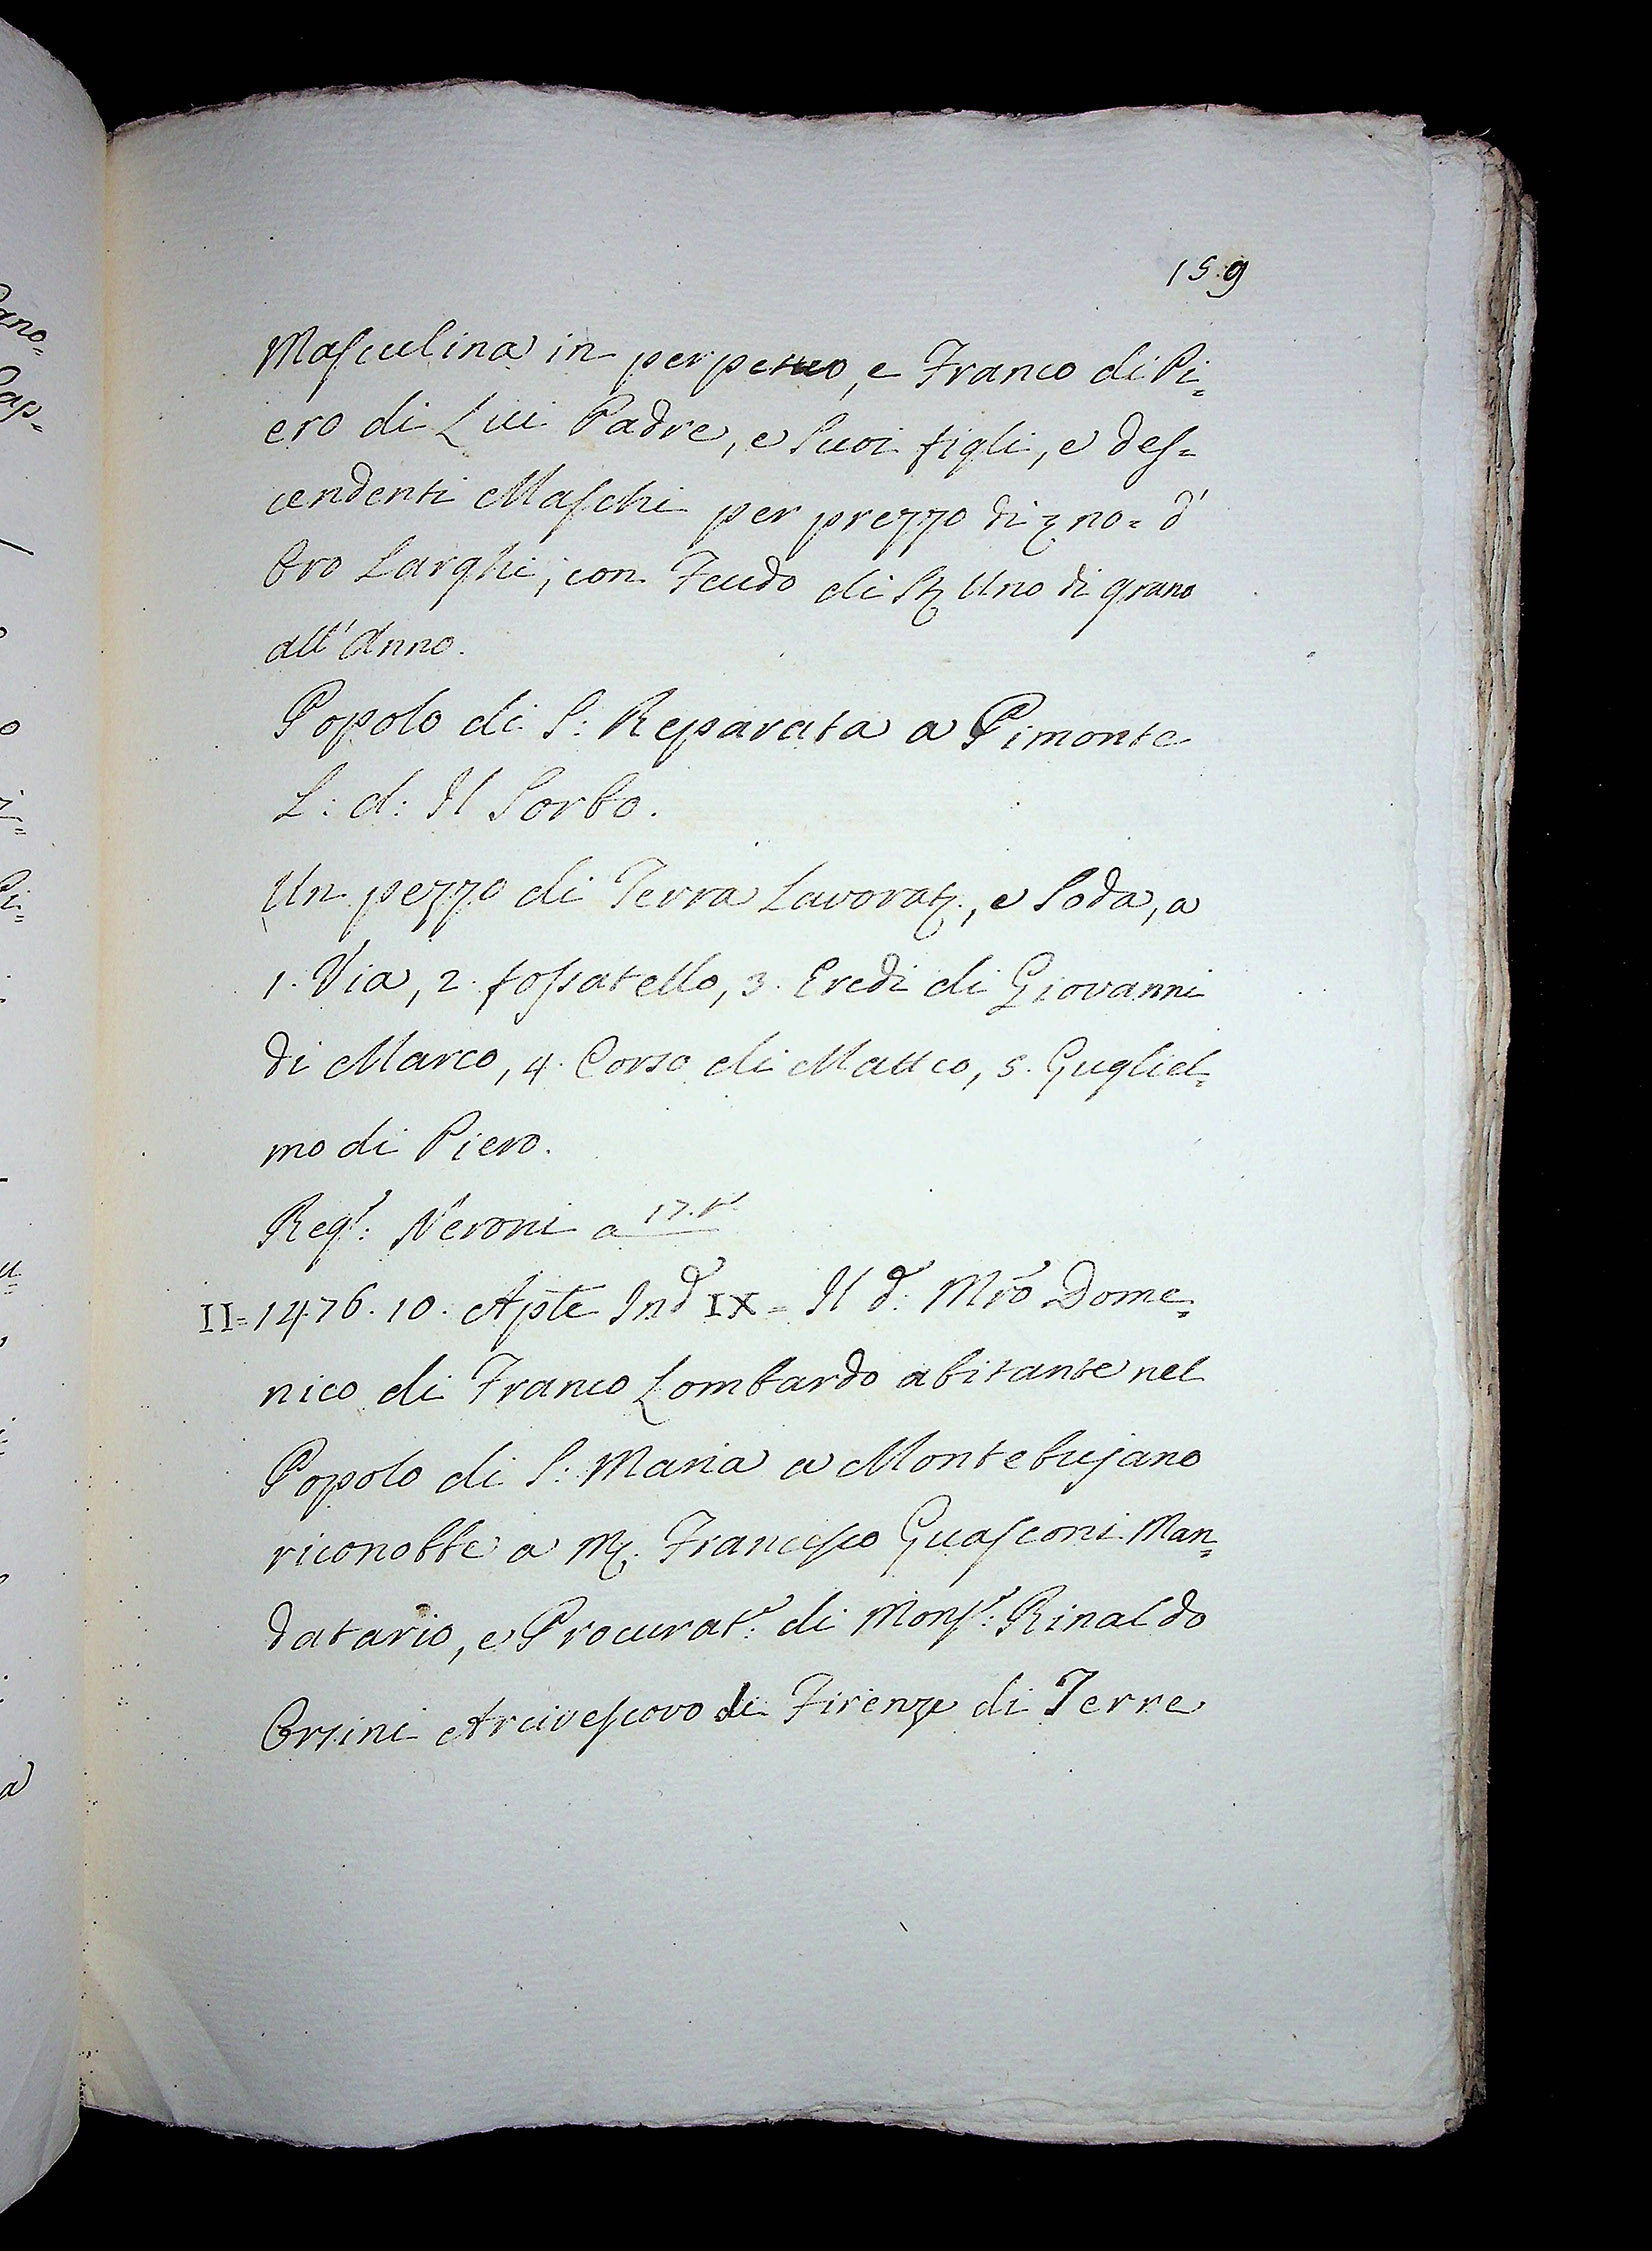 159
Masculina in perpetuo, e Franco di Pi=
ero di Lui Padre, e Suoi figli, e des=
cendenti Maschi per prezzo di no= d'
Oro Larghi, con Feudo di St Uno di grano
all'Anno.
Popolo di S: Reparata a Pimonte
L: d: Il Sorbo.
Un pezzo di Terra Lavorat., e Soda, a
1. Via, 2. fossatello, 3. Eredi di Giovanni
di Marco, 4. Corso di Matteo, 5. Gugliel=
mo di Piero.
Regr: Neroni a 17. tt
II= 1476. 10. Aple Ind IX= Il d: Mro Dome=
nico di Franco Lombardo abitante nel
Popolo di S: Maria a Montebujano
riconobbe a M. Francesco Guasconi Man=
datario, e Procurat: di Monsr: Rinaldo
Orsini Arcivescovo di Firenze di Terre